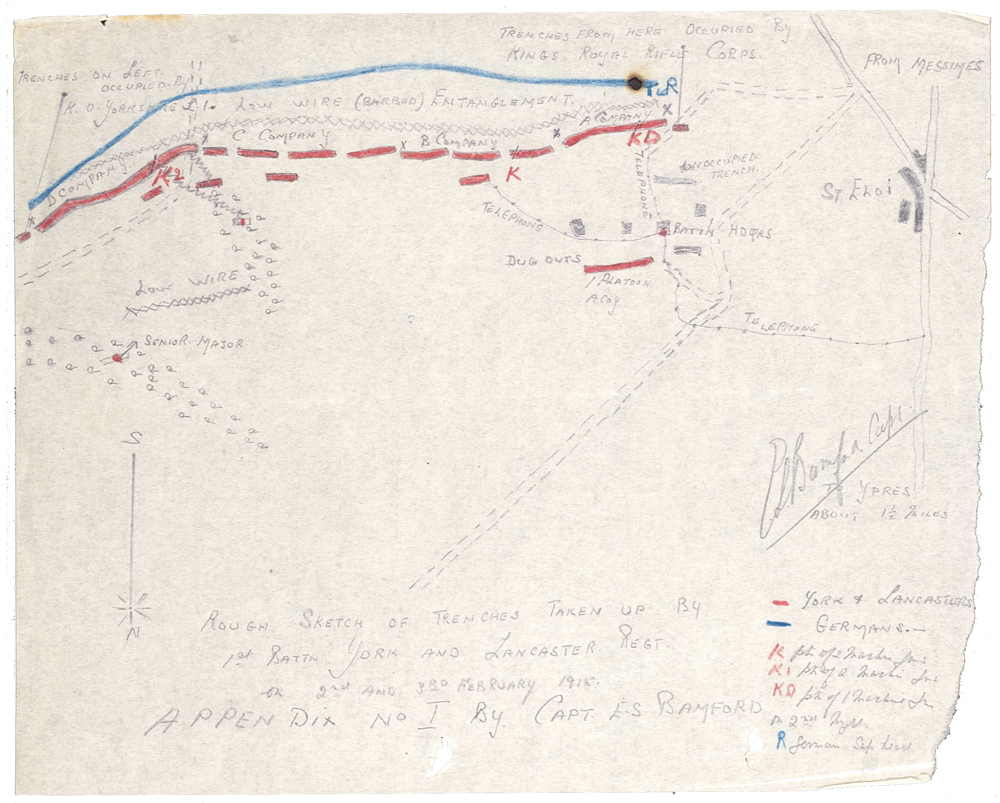 TRENCHES FROM HERE OCCUPIED By
KINGS ROYAL RIFLE CORPS.
FROM MESSIMES
TRENCHES ON LEFT
OCCUPIED By
K.O. YORKSHIRE L.I.
LOW WIRE (BARBED) ENTANGLEMENT.
R
A COMPANY
KD
C COMPANY
B COMPANY
D COMPANY
K2
K
TELEPHONE
UNOCCUPIED
TRENCH.
ST ELOI
TELEPHONE
BATTN HDQRS
DUG OUTS
1 PLATOON
A. Coy
LOW WIRE
TELEPHONE
SENIOR MAJOR
S
N
Bamford Capt.
TO YPRES
ABOUT 1½ MILES
ROUGH SKETCH OF TRENCHES TAKEN UP By
1st BATTN YORK AND LANCASTER REGT.
on 2nd AND 3RD FEBRUARY 1915.
APPENDIX No I By. CAPT. E.S. BAMFORD.
YORK & LANCASTERS
GERMANS.—
K pt of 2 Machine Guns
K1 pt of 2 Machine Guns
KD pt of 1 Machine Gun
on 2nd Night.
R German Sap head